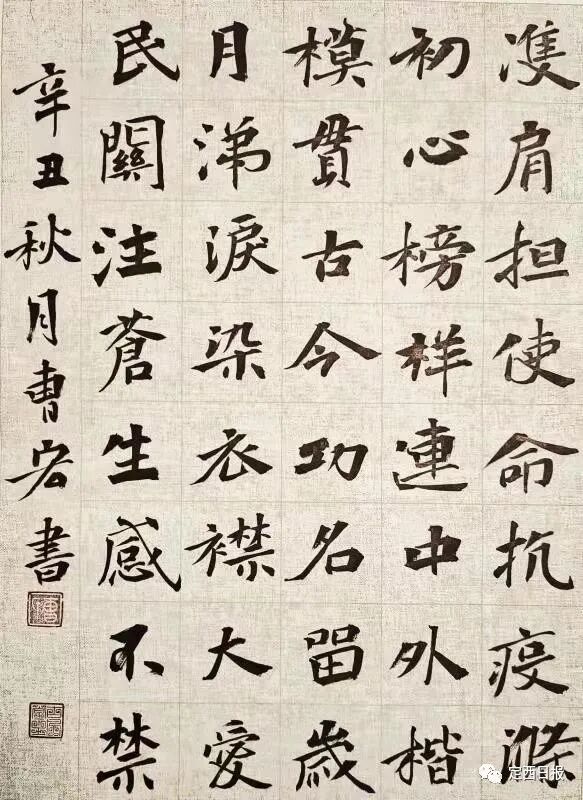 雙肩担使命抗疫滌
初心榜樣連中外楷
模貫古今功名留歲
月涕淚染衣襟大愛
民關注蒼生感不禁
辛丑秋月曹宏書
定西日报